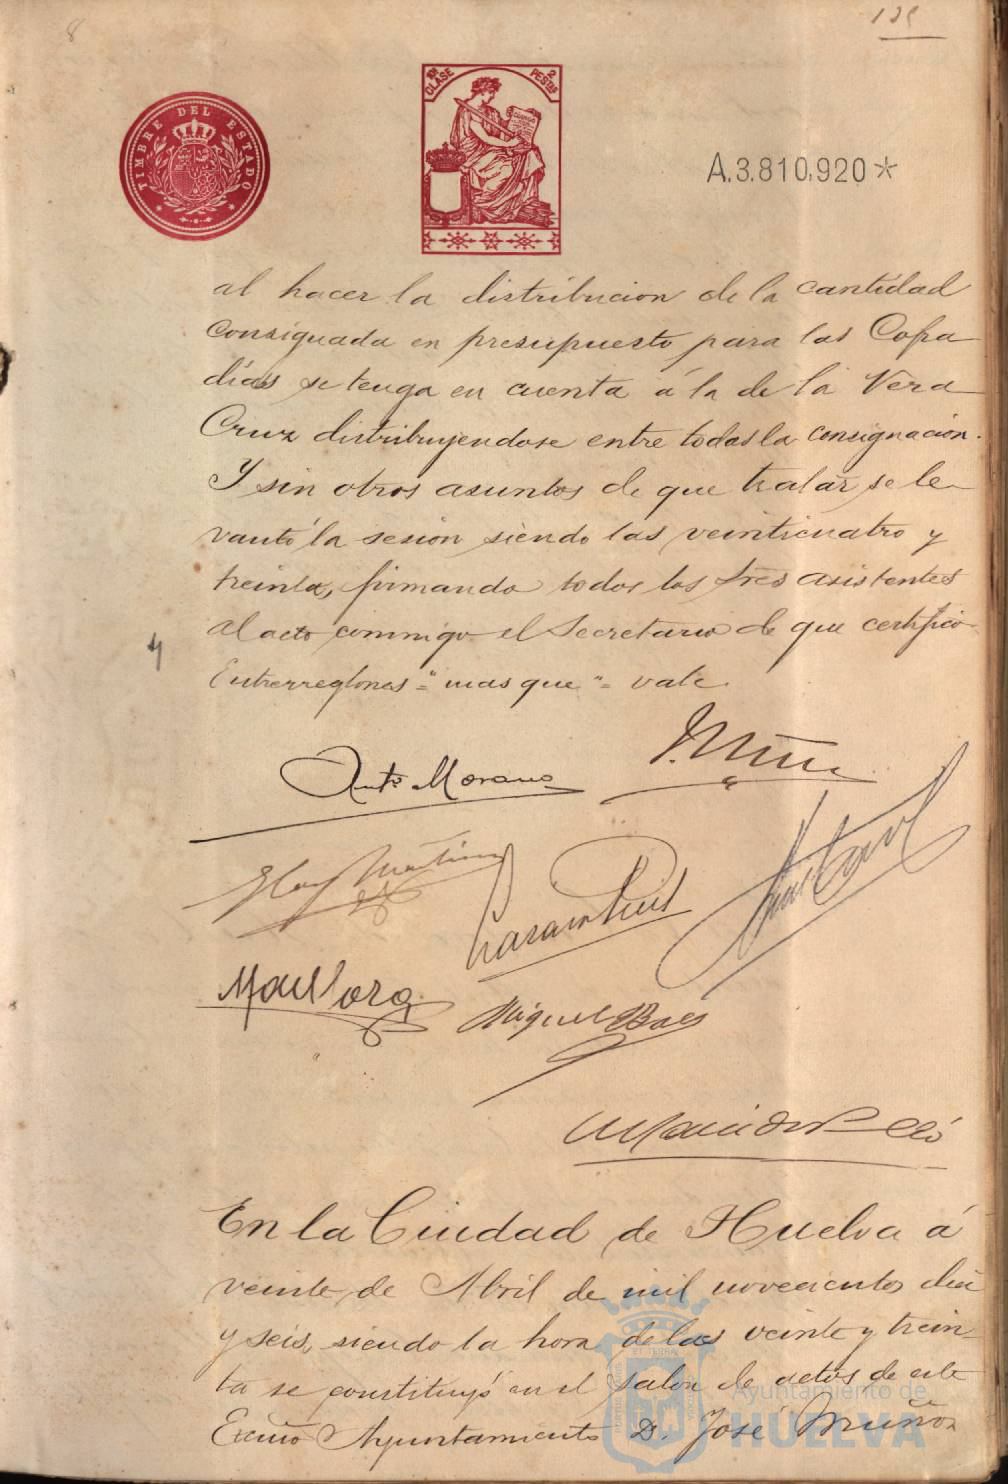 8
TIMBRE DEL ESTADO
11ª CLASE 2 PESTAS
A.3.810,920*
al hacer la distribucion de la cantidad
consignada en presupuesto para las Cofra
días se tenga en cuenta á la de la Vera
Cruz distribuyendose entre todas la consignación.
Y sin otros asuntos de que tratar se le-
vantó la sesión siendo las veinticuatro y
treinta, firmando todos los Sres asistentes
al acto conmigo el Secretario de que certifico
Entrerreglones="mas que"= vale.
J. Muñ
Antº Morano
Eloy Martinez
Mallorg
Miguel Baez
En la Ciudad de Huelva á
veinte de Abril de mil novecientos diez
y seis, siendo la hora de las veinte y trein-
ta se constituyó en el salon de actos de este
Excmo Ayuntamiento D. José Muñoz
Ayuntamiento de
HUELVA